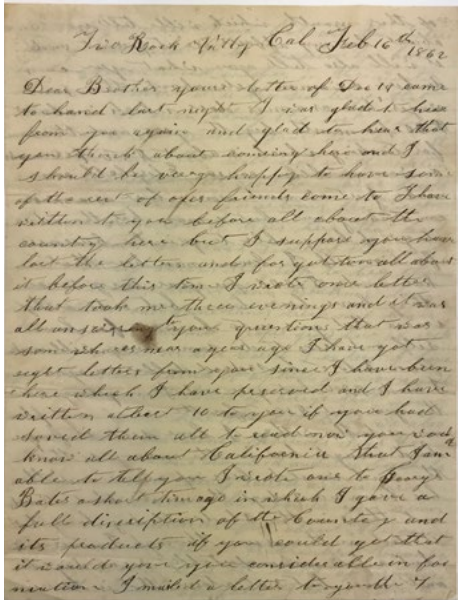 Two Rock Vally Cal Feb 16th 1862
Dear Brother yours letter of Dec 14 came
to hand last night I was glad t hear
from you again and glad to hear that
you think about comeing here and I
should be very happy to have some
of the rest of ower friends come to I have
written to you before all about the
country here but I suppose you have
lost the letter and for got too all about
it before this time I wrote one letter
that took me three evenings and it was
all answering your question that was
some where near a year ago I have got
eight letters from you since I have been
here which I have preserved and I have
written 10 to you if you had
saved them all to read now you would
know all about California that I am
able to tell you I wrote one to
Bates a short time ago in which I gave a
full discription of the Country and
its products if you could get that
it would give you considerable in for
mation I mailed a letter to you the 7